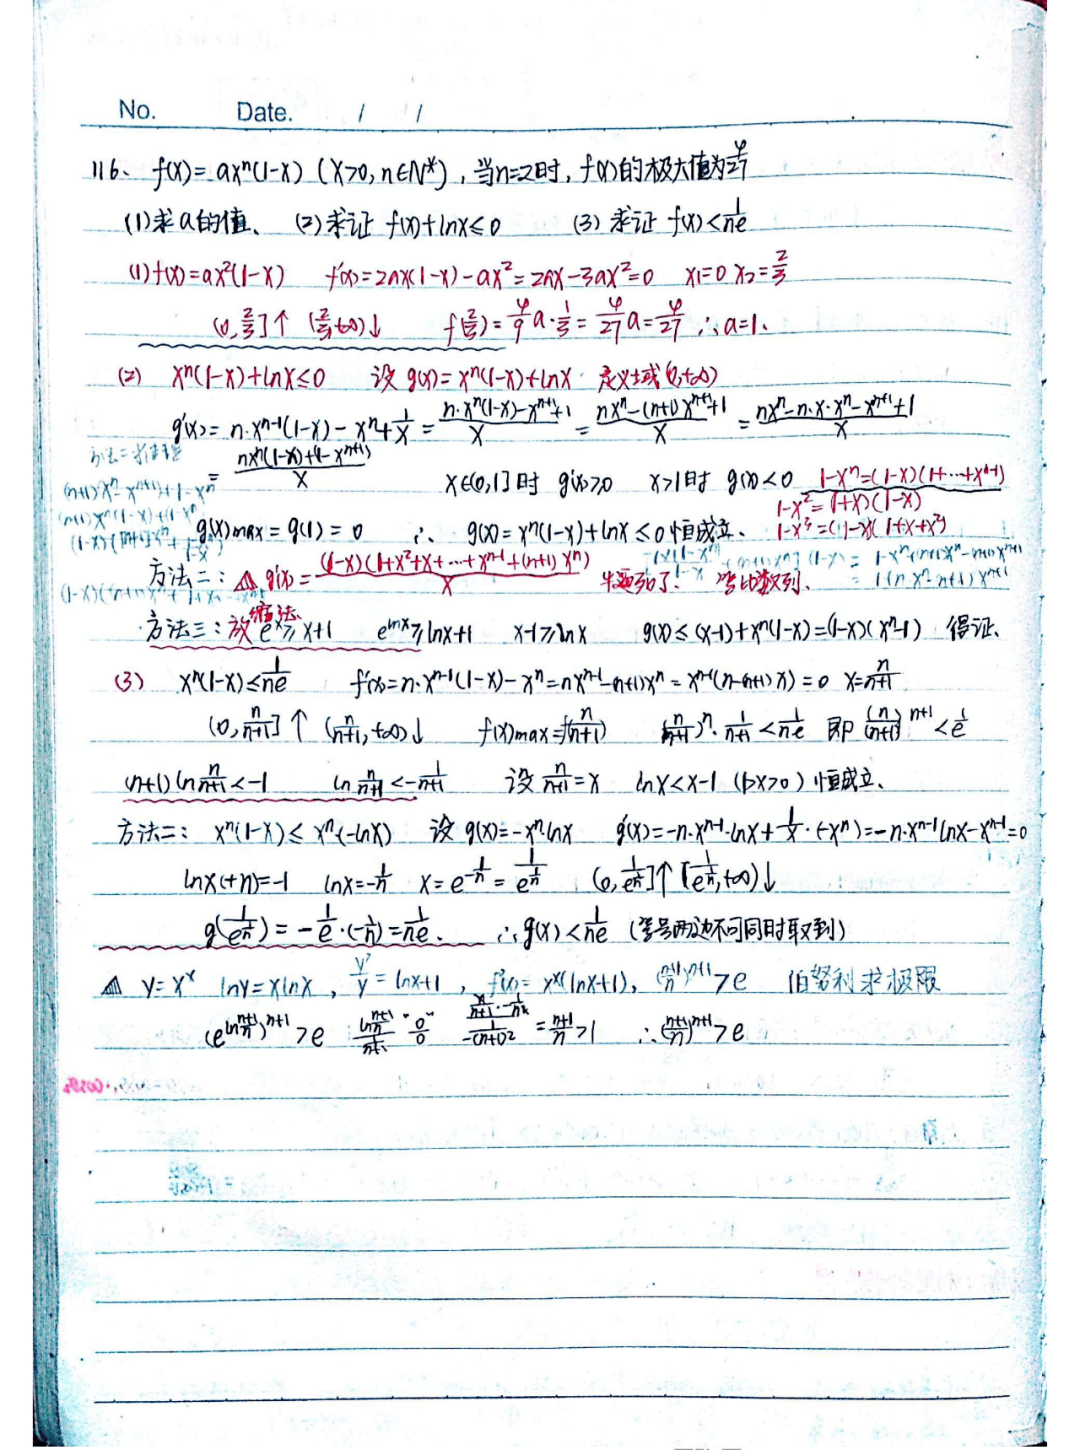 No. Date. / /
116、f(x)=ax^n(1-x) (x>0, n∈N*), 当n=2时, f(x)的极大值为4/27
(1)求a的值、 (2)求证 f(x)+lnx≤0 (3)求证 f(x)<1/ne
(1)f(x)=ax²(1-x) f'(x)=2ax(1-x)-ax²=2ax-3ax²=0 x1=0 x2=2/3
(0,2/3]↑ [2/3,+∞)↓ f(2/3)=4/9a·1/3=4/27a=4/27 ∴a=1、
(2) x^n(1-x)+lnx≤0 设 g(x)=x^n(1-x)+lnx 定义域(0,+∞)
g'(x)=n·x^{n-1}(1-x)-x^n+1/x=(n·x^n(1-x)-x^{n+1}+1)/x=(nx^n-(n+1)x^{n+1}+1)/x=(nx^n-n·x·x^n-x^{n+1}+1)/x
=(nx^n(1-x)+(1-x^{n+1}))/x x∈(0,1]时 g'(x)≥0 x>1时 g'(x)<0 1-x^n=(1-x)(1+…+x^{n-1})
1-x²=(1+x)(1-x)
g(x)max=g(1)=0 ∴ g(x)=x^n(1-x)+lnx≤0恒成立、 1-x³=(1-x)(1+x+x²)
方法二: g'(x)=((1-x)(1+x²+x+…+x^{n-1}+(n+1)x^n))/x 等比数列、
方法三:放缩法 e^x≥x+1 e^{lnx}≥lnx+1 x-1≥lnx g(x)≤(x-1)+x^n(1-x)=(1-x)(x^n-1) 得证、
(3) x^n(1-x)≤1/ne f'(x)=n·x^{n-1}(1-x)-x^n=nx^{n-1}-(n+1)x^n=x^{n-1}(n-(n+1)x)=0 x=n/(n+1)
(0,n/(n+1)]↑ (n/(n+1),+∞)↓ f(x)max=f(n/(n+1)) (n/(n+1))^n·1/(n+1)<1/ne 即 (n/(n+1))^{n+1}<1/e
(n+1)ln n/(n+1)<-1 ln n/(n+1)<-1/(n+1) 设 n/(n+1)=x lnx<x-1 (1>x>0)恒成立、
方法二: x^n(1-x)≤x^n(-lnx) 设g(x)=-x^n·lnx g'(x)=-n·x^{n-1}·lnx+1/x·(-x^n)=-n·x^{n-1}lnx-x^{n-1}=0
lnx(+n)=-1 lnx=-1/n x=e^{-1/n}=1/e^{1/n} (0,1/e^{1/n}]↑ [1/e^{1/n},+∞)↓
g(1/e^{1/n})=-1/e·(-1/n)=1/ne、 ∴g(x)<1/ne (等号两边不可同时取到)
y=x^x lny=xlnx, y'/y=lnx+1, f'(x)=x^x(lnx+1), ((n+1)/n)^{n+1}>e 伯努利求极限
(e^{ln (n+1)/n})^{n+1}>e "0/0" =(n+1)/n>1 ∴((n+1)/n)^{n+1}>e